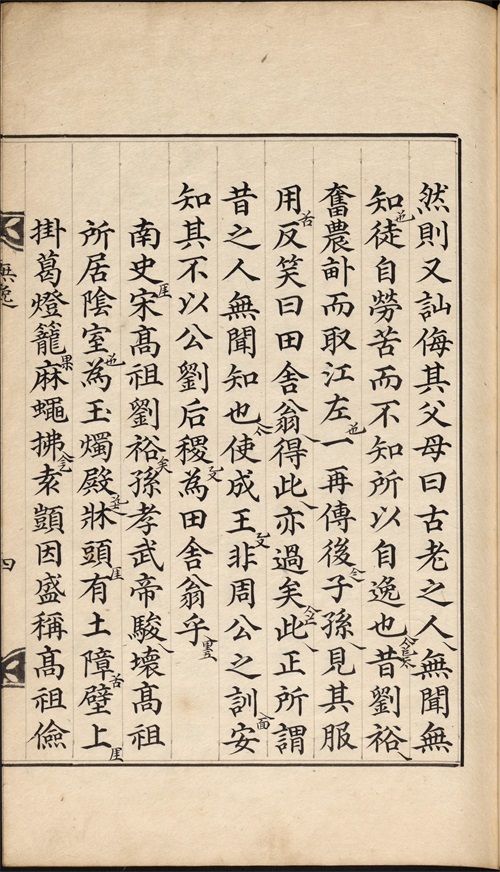 然則又訕侮其父母曰古老之人無聞無
知徒自勞苦而不知所以自逸也昔劉裕
奮農畝而取江左一再傳後子孫見其服
用反笑曰田舍翁得此亦過矣此正所謂
昔之人無聞知也使成王非周公之訓安
知其不以公劉后稷為田舍翁乎
南史宋髙祖劉裕孫孝武帝駿壞髙祖
所居陰室為玉燭殿牀頭有土障壁上
掛葛燈籠麻蠅拂袁顗因盛稱髙祖儉
無逸
四